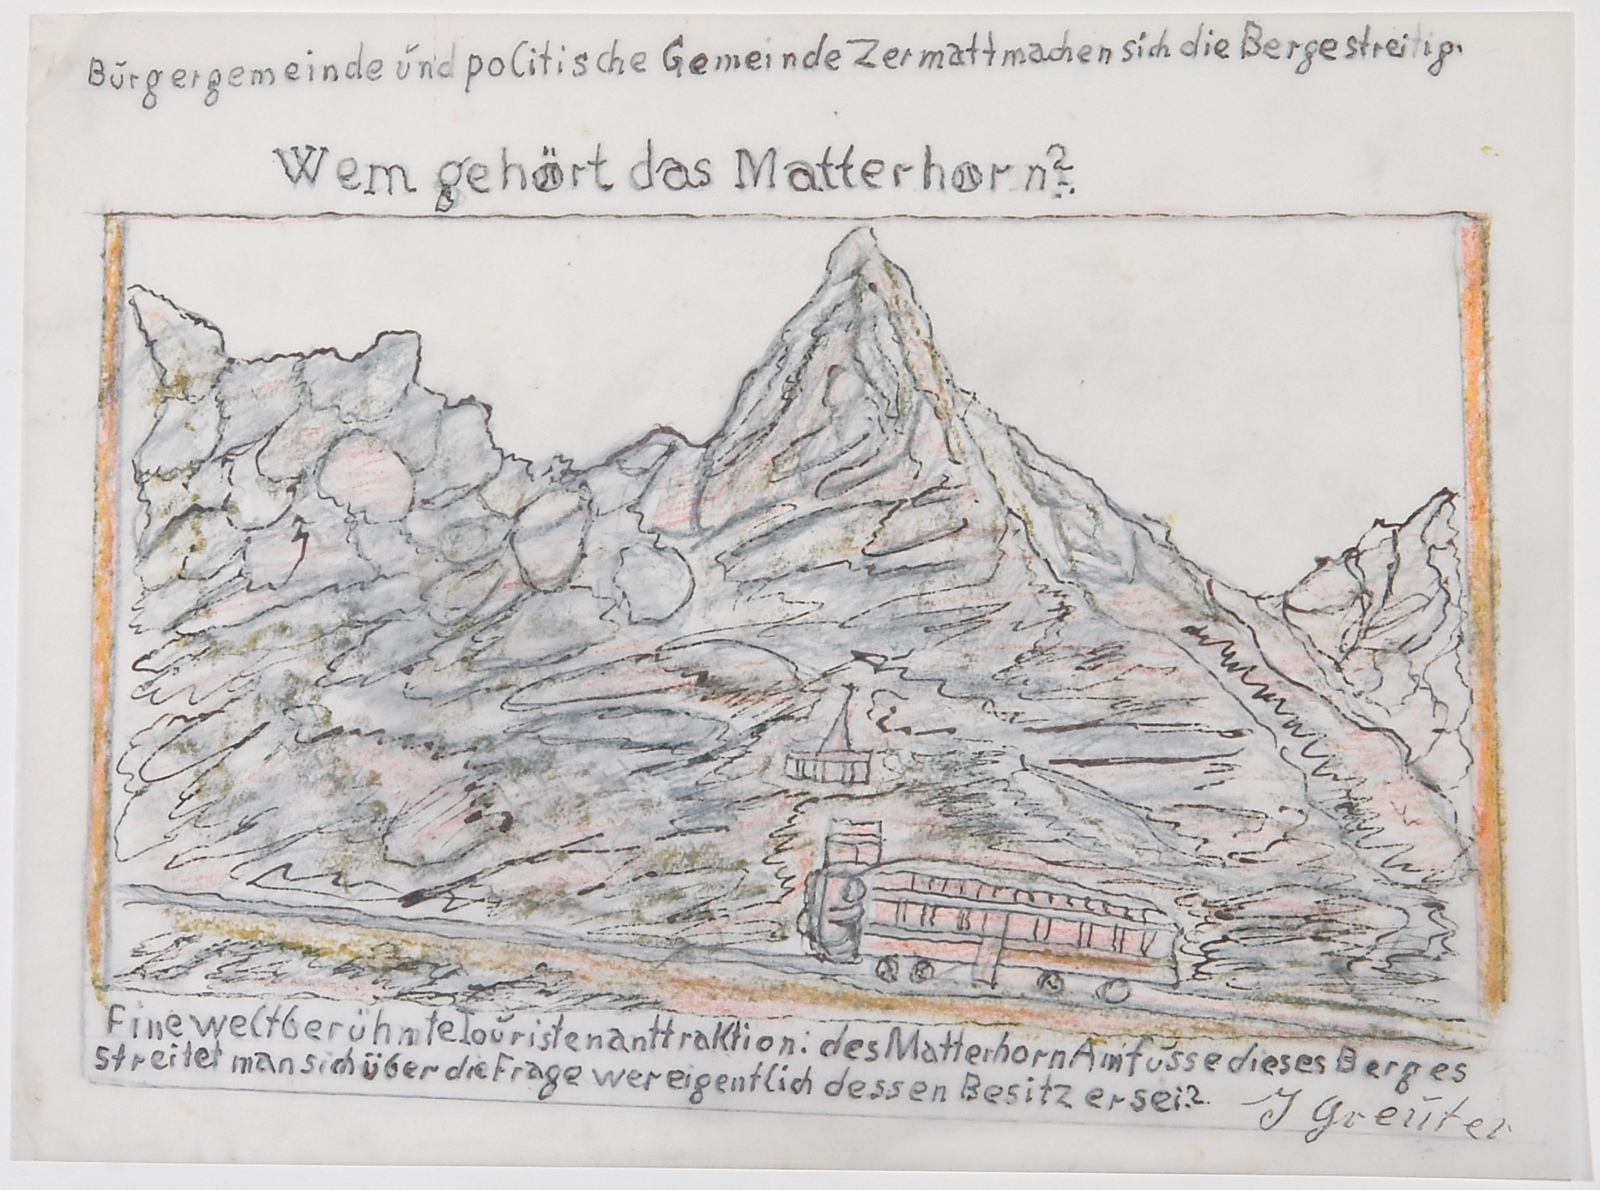 Bürgergemeinde und politische Gemeinde Zermatt machen sich die Berge streitig.
Wem gehört das Matterhorn?
Eine weltberühmte Touristenanttraktion: des Matterhorn Am fusse dieses Berges
streitet man sich über die Frage wer eigentlich dessen Besitzer sei?
J Greuter